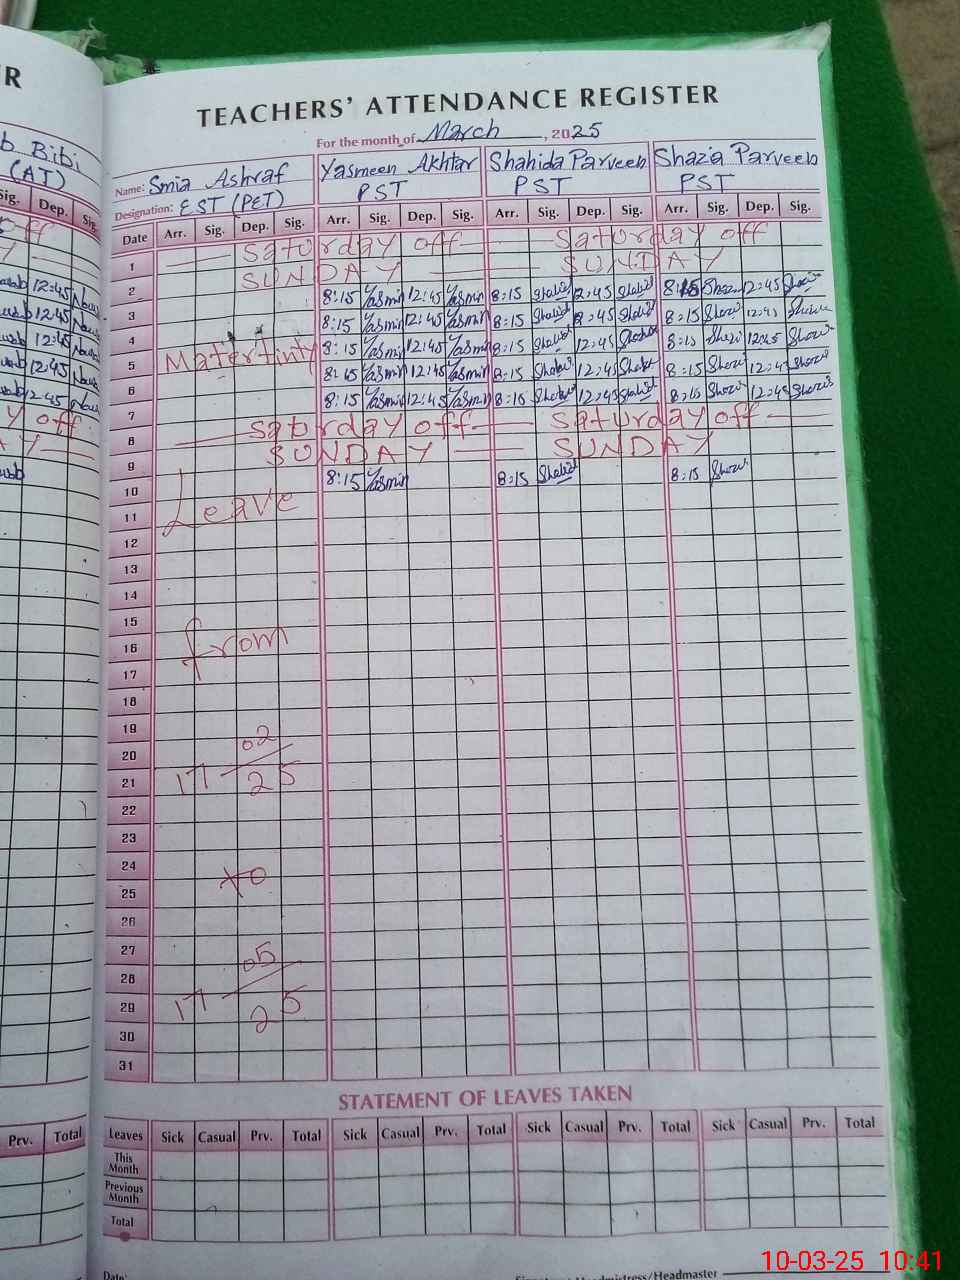 R
TEACHERS' ATTENDANCE REGISTER
For the month of March, 2025
b Bibi
(AT)
Name: Smia Ashraf Yasmeen Akhtar Shahida Parveen Shazia Parveen
Designation: EST (PET) PST PST PST
Sig. Dep. Sig.
Date Arr. Sig. Dep. Sig. Arr. Sig. Dep. Sig. Arr. Sig. Dep. Sig. Arr. Sig. Dep. Sig.
1 Saturday off Saturday off
2 SUNDAY SUNDAY
3 8:15 Yasmin 12:45 Yasmin 8:15 Shahid 12:45 Shahid 8:15 12:45
4 8:15 Yasmin 12:45 Yasmin 8:15 Shahid 12:45 Shahid 8:15 12:45
5 8:15 Yasmin 12:45 Yasmin 8:15 Shahid 12:45 Shahid 8:15 12:45
6 8:15 Yasmin 12:45 Yasmin 8:15 Shahid 12:45 Shahid 8:15 12:45
7 8:15 Yasmin 12:45 Yasmin 8:15 Shahid 12:45 Shahid 8:15 12:45
Matertinty
8 Saturday off Saturday off
9 SUNDAY SUNDAY
10 8:15 Yasmin 8:15 Shahid 8:15
11
Leave
12
13
14
15
16
from
17
18
19
20
21
17 02/25
22
23
24
25
to
26
27
28
29
17 05/25
30
31
STATEMENT OF LEAVES TAKEN
Prv. Total
Leaves Sick Casual Prv. Total Sick Casual Prv. Total Sick Casual Prv. Total Sick Casual Prv. Total
This Month
Previous Month
Total
Date:
Headmistress/Headmaster
10-03-25 10:41